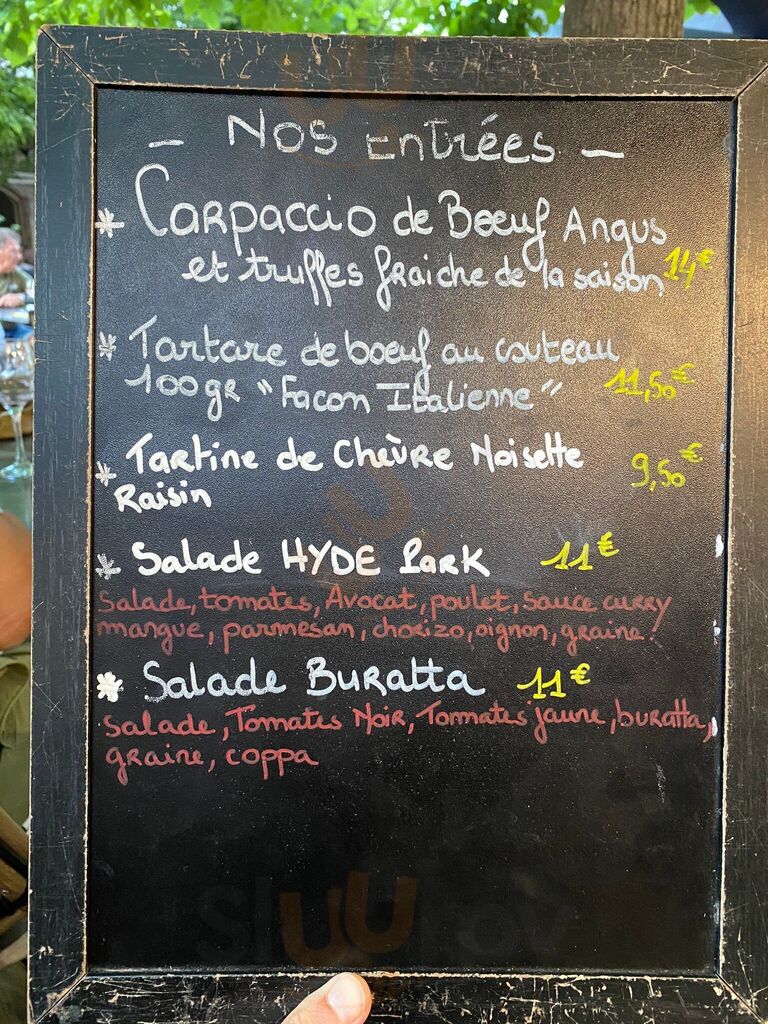 - Nos Entrées -
* Carpaccio de Boeuf Angus
et truffes fraiche de la saison 14€
* Tartare de boeuf au couteau
100gr "Facon Italienne" 11,50€
* Tartine de Chèvre Noisette 9,50€
Raisin
* Salade HYDE PARK 11€
Salade, tomates, Avocat, poulet, sauce curry
mangue, parmesan, chorizo, oignon, graine.
* Salade Buratta 11€
salade, Tomates Noir, Tomates jaune, buratta,
graine, coppa